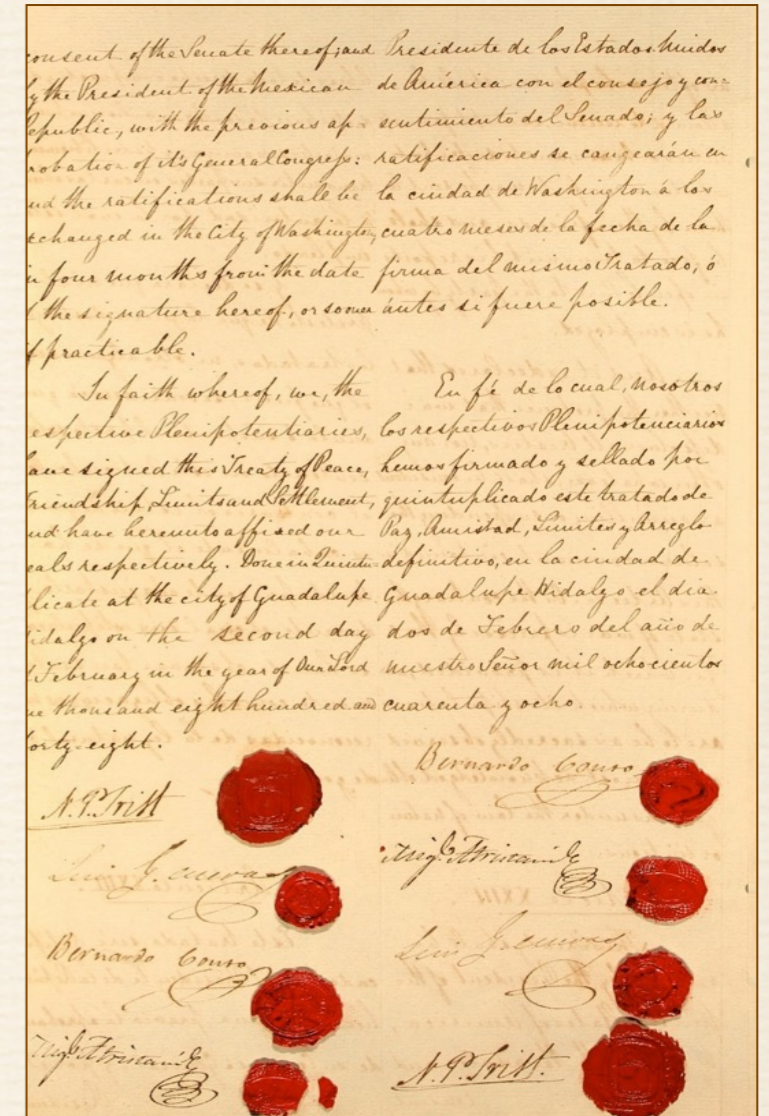 onsent of the Senate thereof; and
y the President of the Mexican
epublic, with the previous ap-
robation of it's General Congress:
nd the ratifications shall be
xchanged in the City of Washington,
n four months from the date
f the signature hereof, or sooner
f practicable.
In faith whereof, we, the
espective Plenipotentiaries,
ave signed this Treaty of Peace,
riendship, Limits and Settlement,
nd have hereunto affixed our
eals respectively. Done in Quintu-
licate at the city of Guadalupe
idalgo on the second day
f February in the year of Our Lord
ne thousand eight hundred and
orty-eight.
N. P. Trist
Luis G. Cuevas
Bernardo Couto
Migl. Atristain
Presidente de los Estados Unidos
de América con el consejo y con-
sentimiento del Senado; y las
ratificaciones se cangearán en
la ciudad de Washington á los
cuatro meses de la fecha de la
firma del mismo Tratado, ó
ántes si fuere posible.
En fé de lo cual, nosotros
los respectivos Plenipotenciarios
hemos firmado y sellado por
quintuplicado este tratado de
Paz, Amistad, Limites y Arreglo
definitivo, en la ciudad de
Guadalupe Hidalgo el dia
dos de Febrero del año de
nuestro Señor mil ochocientos
cuarenta y ocho.
Bernardo Couto
Migl. Atristain
Luis G. Cuevas
N. P. Trist.